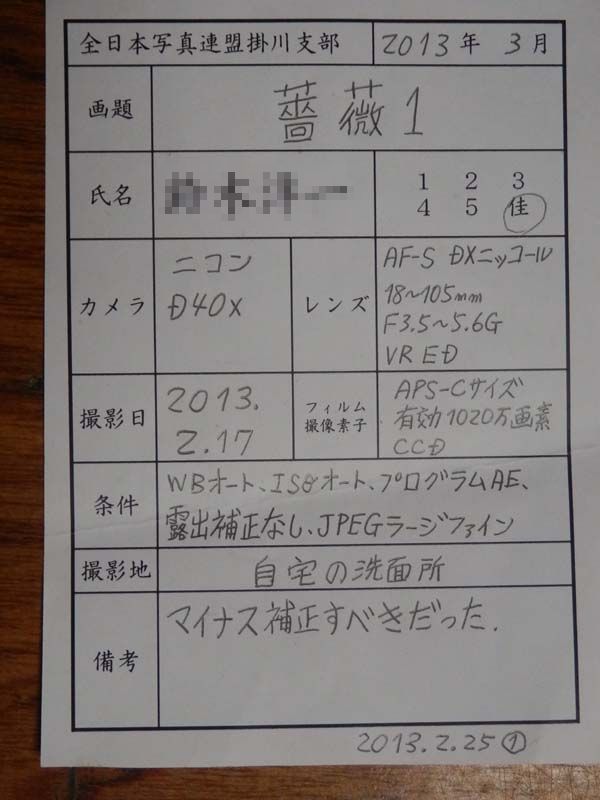 全日本写真連盟掛川支部 2013年 3月
画題 薔薇1
氏名
1 2 3
4 5 佳
カメラ
ニコン
D40X
レンズ
AF-S DXニッコール
18~105mm
F3.5~5.6G
VR ED
撮影日
2013.
2.17
フィルム
撮像素子
APS-Cサイズ
有効1020万画素
CCD
条件
WBオート、ISOオート、プログラムAE、
露出補正なし、JPEGラージファイン
撮影地 自宅の洗面所
備考
マイナス補正すべきだった.
2013.2.25 ①